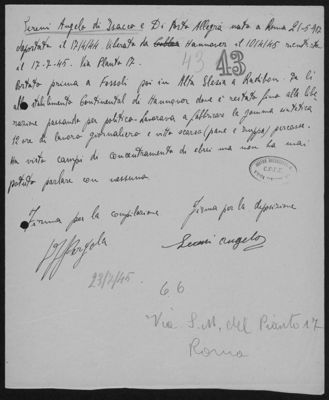 Sereni Angelo di Isacco e Di Porto Allegra nato a Roma 21-5-912
deportato il 17/4/44 liberato da Hannover il 10/4/45 rientrato
il 17-7-45. Via Pianto 17.
43 43
Portato prima a Fossoli poi in Alta Slesia a Ratibor. Da lì
stabilimento Continental di Hannover dove è restato fino alla libe
razione passando per politico. Lavorava a fabbricare la gomma sintetica
12 ore di lavoro giornaliero e vitto scarso (pane e zuppa) percosse.
Ha visto campi di concentramento di ebrei ma non ha mai
potuto parlare con nessuno.
Firma per la compilazione Firma per la deposizione
Sereni Angelo
23/7/45.
6.6
Via S. M. del Pianto 17
Roma